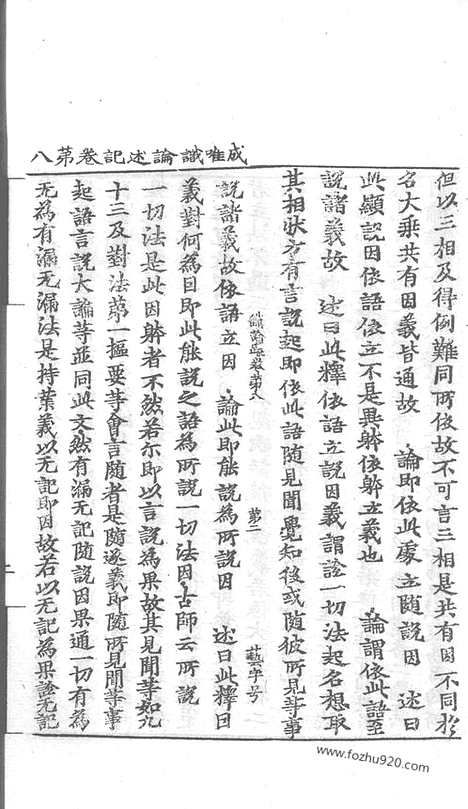 但以三相及得例難同所依故不可言三相是共有因不同於
名大乗共有因義皆通故　論即依此處立隨說因　述曰
此顯說因依語依立不是異躰依躰立義也　論謂依此語至
說諸義故　述曰此釋依語立說因義謂詮一切法起名想取
其相狀方有言說起即依此語隨見聞覺知後或隨彼所見等事
第二　藝字号
說諸義故依語立因　論此即能說為所說因　述曰此釋曰
義對何為因即此能說之語為所說一切法因古師云所說
一切法是此因躰者不然若尔即以言說為果故其見聞等如九
十三及對法苐一摳要等會言隨者是隨逐義即隨所見聞等事
起語言說大論等並同此文然有漏无記隨說因果通一切有為
无為有漏无漏法是持業義以无記即因故若以无記為果詮无記
成唯識論述記卷苐八
www.fozhu920.com